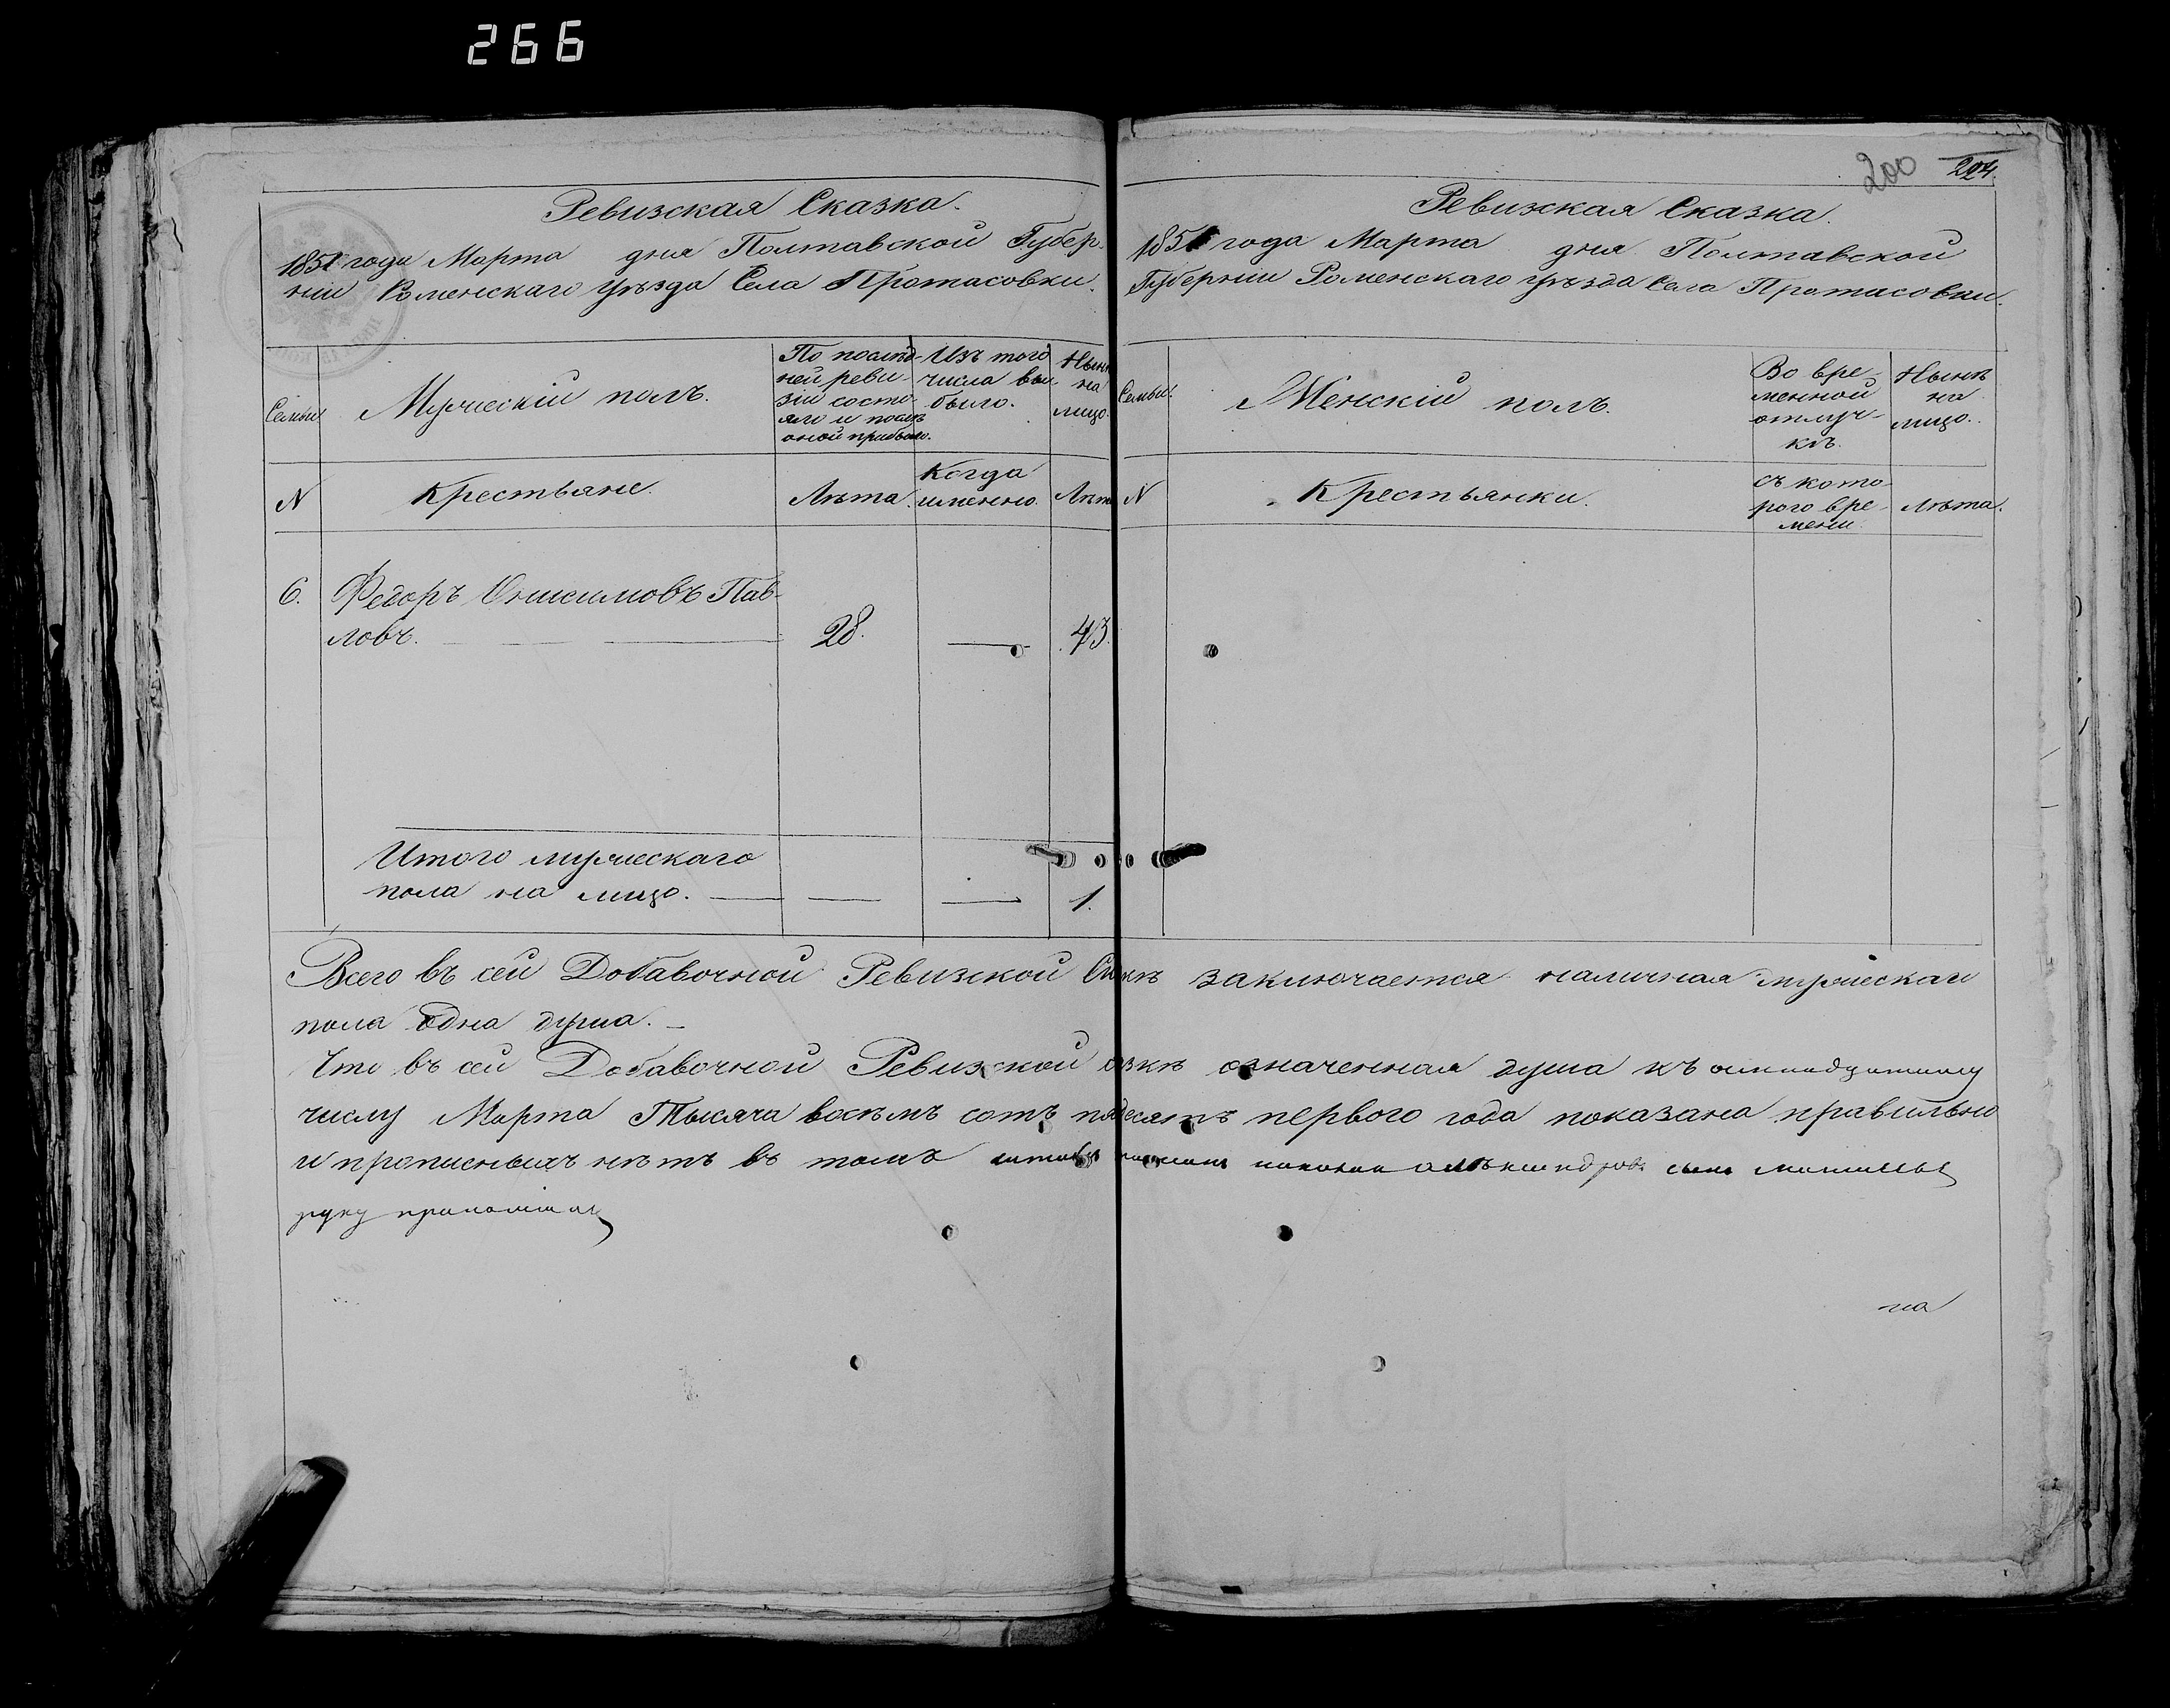 266
Ревизская Сказка.
1851 года Марта дня Полтавской Губер-
ніи Роменскаго Уѣзда Села Протасовки.
Семьи
Мужескій полъ.
По послѣд-
ней реви-
зіи состо-
яло и послѣ
оной прибыло.
Изъ того
числа вы-
было.
Нынѣ
на
лицо.
N
Крестьяне.
Лѣта.
Когда
именно.
Лѣта
6.
Федоръ Онисимовъ Пав-
ловъ.
28.
43.
Итого мужескаго
пола на лицо.
1.
200
224.
Ревизкая Сказка.
1851 года Марта дня Полтавской
Губерніи Роменскаго Уѣзда Села Протасовки.
Семьи.
Женскій полъ.
Во вре-
менной
отлуч-
кѣ.
Нынѣ
на
лицо.
N
Крестьянки.
съ кото-
рого вре-
мени.
Лѣта.
Всего въ сей Добавочной Ревизской заключается наличная мужескаго
пола одна душа.
Что въ сей Добавочной Ревизской означенная душа къ
числу Марта Тысяча восемь сотъ пядесятъ первого года показана правильно
и прописныхъ нѣтъ въ томъ сынъ
руку приложилъ
на